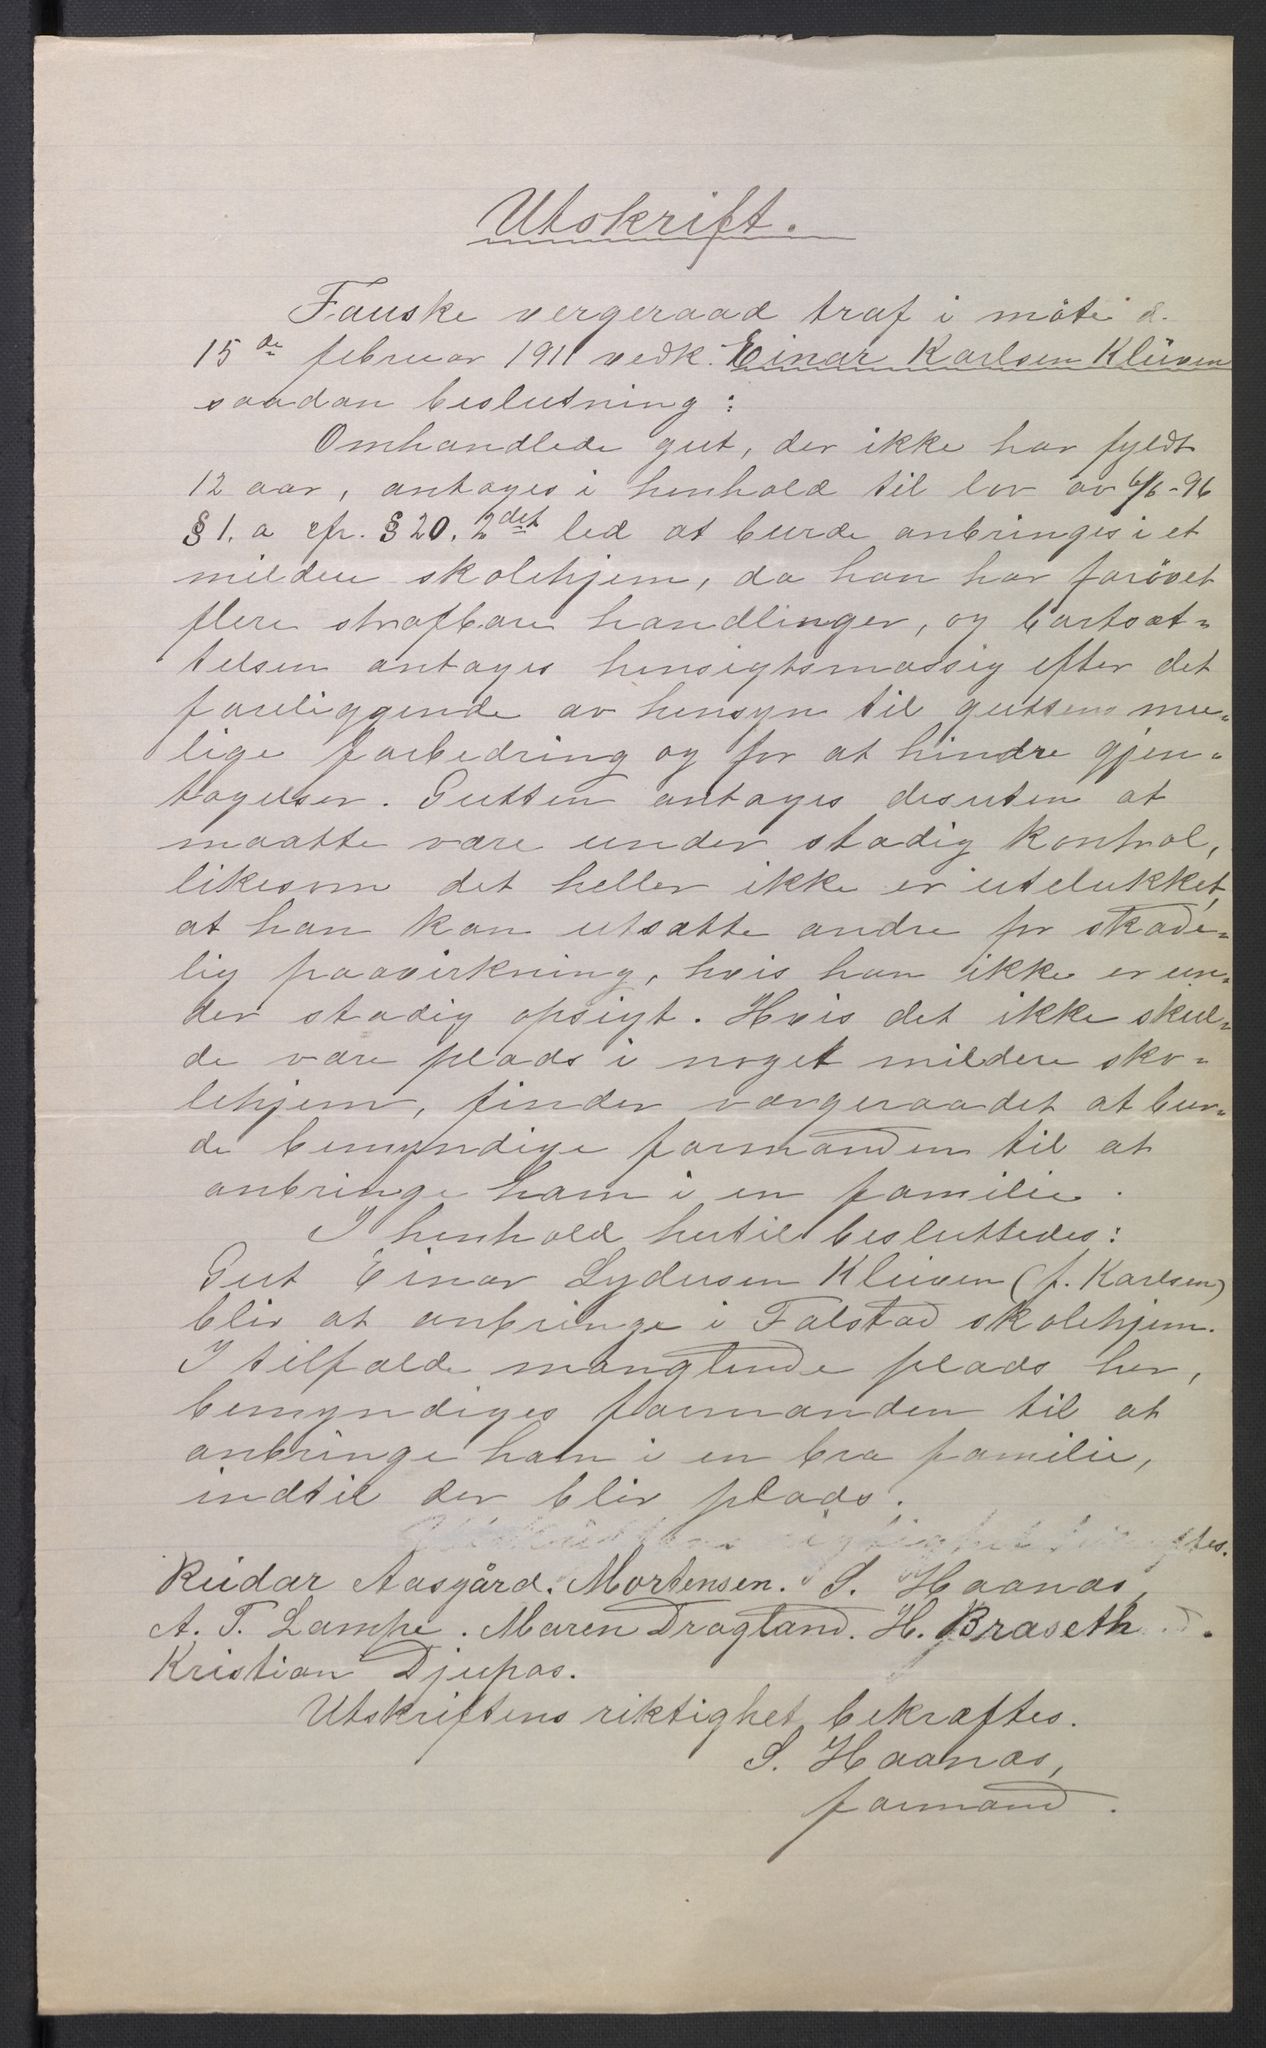 Utskrift.
Fauske vergeraad traf i møte d.
15de februar 1911 vedk. Einar Karlsen Klüven
saadan beslutning:
Omhandlede gut, der ikke har fyldt
12 aar, antages i henhold til lov av 6/6-96
§ 1. a cfr. § 20. 2det led at burde anbringes i et
mildere skolehjem, da han har forøvet
flere strafbare handlinger, og bortsæt-
telsen antages hensigtsmæssig efter det
foreliggende av hensyn til guttens mu-
lige forbedring og for at hindre gjen-
tagelser. Gutten antages desuten at
maatte være under stadig kontrol,
likesom det heller ikke er utelukket,
at han kan utsætte andre for skade-
lig paavirkning, hvis han ikke er un-
der stadig opsigt. Hvis det ikke skul-
de være plads i noget mildere sko-
lehjem, finder værgeraadet at bur-
de bemyndige formanden til at
anbringe ham i en familie.
I henhold hertil besluttedes:
Gut Einar Lydersen Klüven (f. Karlsen)
blir at anbringe i Falstad skolehjem.
I tilfælde manglende plads her,
bemyndiges formanden til at
anbringe ham i en bra familie,
indtil der blir plads.
Reidar Aasgård. Mortensen. S. Haanæs,
A. T. Lampe. Maren Dragland. H. Braseth.
Kristian Djupos.
Utskriftens riktighet bekræftes.
S. Haanæs,
formand.